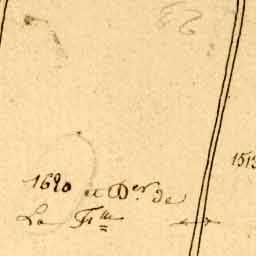 1620 et Der. de
La Fme
1513